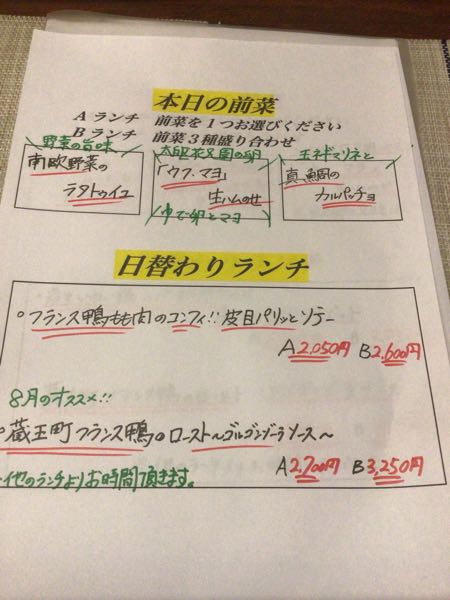 本日の前菜
Aランチ 前菜を1つお選びください
Bランチ 前菜3種盛り合わせ
野菜の旨味
南欧野菜の
ラタトゥイユ
「ウフ・マヨ」
生ハムのせ
ゆで卵とマヨ
玉ネギマリネと
真鯛の
カルパッチョ
日替わりランチ
。フランス鴨もも肉のコンフィ!! 皮目パリッとソテー
A2,050円 B2,600円
8月のオススメ!!
。蔵王町フランス鴨のロースト〜ゴルゴンゾーラソース〜
A2,700円 B3,250円
他のランチよりお時間頂きます。